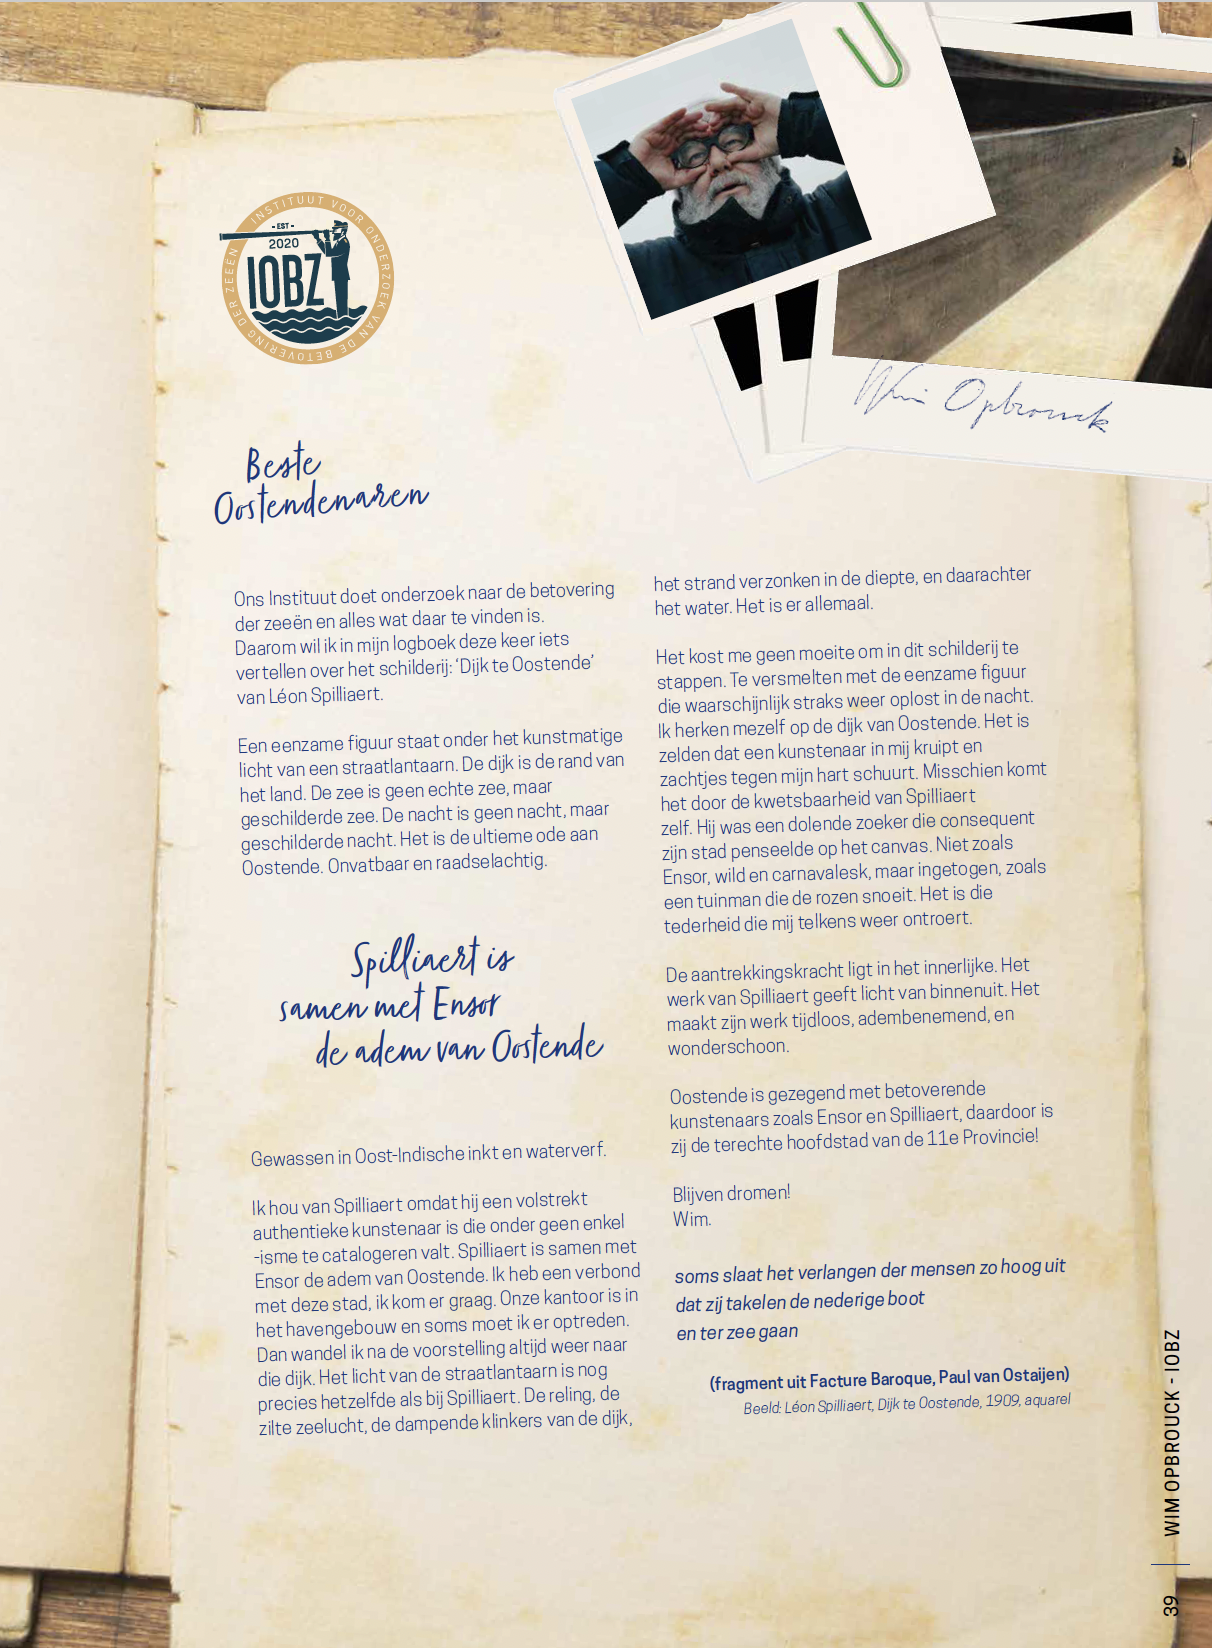 INSTITUUT VOOR ONDERZOEK VAN DE BETOVERING DER ZEEËN
- EST -
2020
IOBZ
Wim Opbrouck
Beste
Oostendenaren
Ons Instituut doet onderzoek naar de betovering
der zeeën en alles wat daar te vinden is.
Daarom wil ik in mijn logboek deze keer iets
vertellen over het schilderij: ‘Dijk te Oostende’
van Léon Spilliaert.
Een eenzame figuur staat onder het kunstmatige
licht van een straatlantaarn. De dijk is de rand van
het land. De zee is geen echte zee, maar
geschilderde zee. De nacht is geen nacht, maar
geschilderde nacht. Het is de ultieme ode aan
Oostende. Onvatbaar en raadselachtig.
Spilliaert is
samen met Ensor
de adem van Oostende
Gewassen in Oost-Indische inkt en waterverf.
Ik hou van Spilliaert omdat hij een volstrekt
authentieke kunstenaar is die onder geen enkel
-isme te catalogeren valt. Spilliaert is samen met
Ensor de adem van Oostende. Ik heb een verbond
met deze stad, ik kom er graag. Onze kantoor is in
het havengebouw en soms moet ik er optreden.
Dan wandel ik na de voorstelling altijd weer naar
die dijk. Het licht van de straatlantaarn is nog
precies hetzelfde als bij Spilliaert. De reling, de
zilte zeelucht, de dampende klinkers van de dijk,
het strand verzonken in de diepte, en daarachter
het water. Het is er allemaal.
Het kost me geen moeite om in dit schilderij te
stappen. Te versmelten met de eenzame figuur
die waarschijnlijk straks weer oplost in de nacht.
Ik herken mezelf op de dijk van Oostende. Het is
zelden dat een kunstenaar in mij kruipt en
zachtjes tegen mijn hart schuurt. Misschien komt
het door de kwetsbaarheid van Spilliaert
zelf. Hij was een dolende zoeker die consequent
zijn stad penseelde op het canvas. Niet zoals
Ensor, wild en carnavalesk, maar ingetogen, zoals
een tuinman die de rozen snoeit. Het is die
tederheid die mij telkens weer ontroert.
De aantrekkingskracht ligt in het innerlijke. Het
werk van Spilliaert geeft licht van binnenuit. Het
maakt zijn werk tijdloos, adembenemend, en
wonderschoon.
Oostende is gezegend met betoverende
kunstenaars zoals Ensor en Spilliaert, daardoor is
zij de terechte hoofdstad van de 11e Provincie!
Blijven dromen!
Wim.
soms slaat het verlangen der mensen zo hoog uit
dat zij takelen de nederige boot
en ter zee gaan
(fragment uit Facture Baroque, Paul van Ostaijen)
Beeld: Léon Spilliaert, Dijk te Oostende, 1909, aquarel
WIM OPBROUCK - IOBZ
39